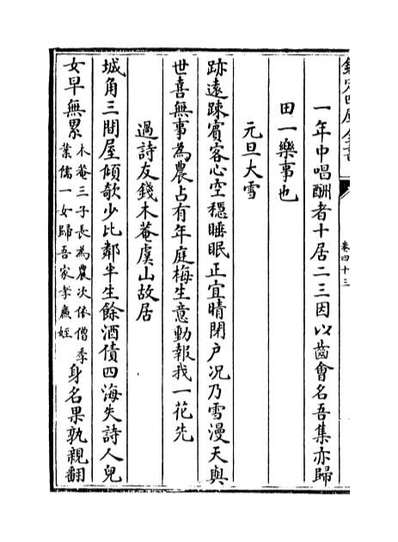 欽定四庫全書
卷四十三
一年中唱酬者十居二三因以齒會名吾集亦歸
田一樂事也
元旦大雪
跡遠踈賓客心空穩睡眠正宜晴閉户況乃雪漫天與
世喜無事為農占有年庭梅生意動報我一花先
過詩友錢木菴虞山故居
城角三間屋傾欹少比鄰半生餘酒債四海失詩人兒
女早無累木菴三子長為農次依僧季業儒一女歸吾家孝廉姪身名果孰親翻